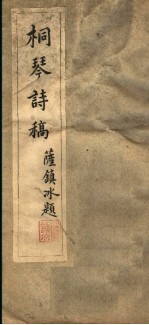 桐琴詩稿
薩鎮冰題